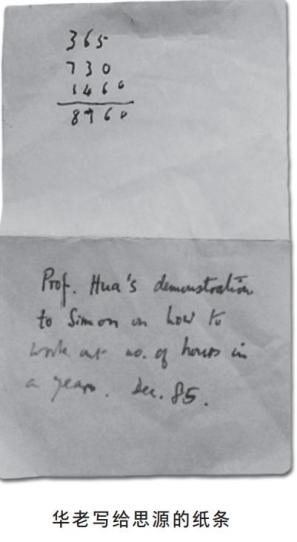 365
730
1460
8760
Prof. Hua's demonstration
to Simon on how to
work out no. of hours in
a years. Dec. 85.
华老写给思源的纸条